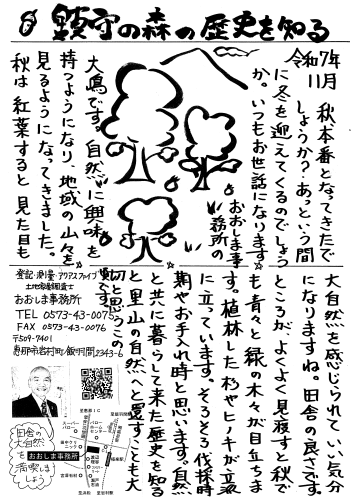 鎮守の森の歴史を知る
令和7年
11月
秋本番となってきたで
しょうか？あっという間
に冬を迎えてくるのでしょう
か。いつもお世話になります
おおしま事
務所の
大嶋です。自然に興味を
持つようになり、地域の山々を
見るようになってきました。
秋は紅葉すると見た目も
大自然を感じられていい気分
になりますね。田舎の良さです。
ところが、よくよく見渡すと秋で
も青々と緑の木々が目立ちま
す。植林した杉やヒノキが立派
に立っています。そろそろ伐採時
期やお手入れ時と思います。自然
と共に暮らして来た歴史を知る
と里山の自然へと還すことも大
切と思うこの
頃です。
登記・測量・アクアスファイブ
土地家屋調査士
おおしま事務所
TEL 0573-43-0075
FAX 0573-43-0076
〒509-7401
恵那市岩村町飯羽間2343-6
田舎の
大自然
を
満喫しま
しょう
おおしま事務所